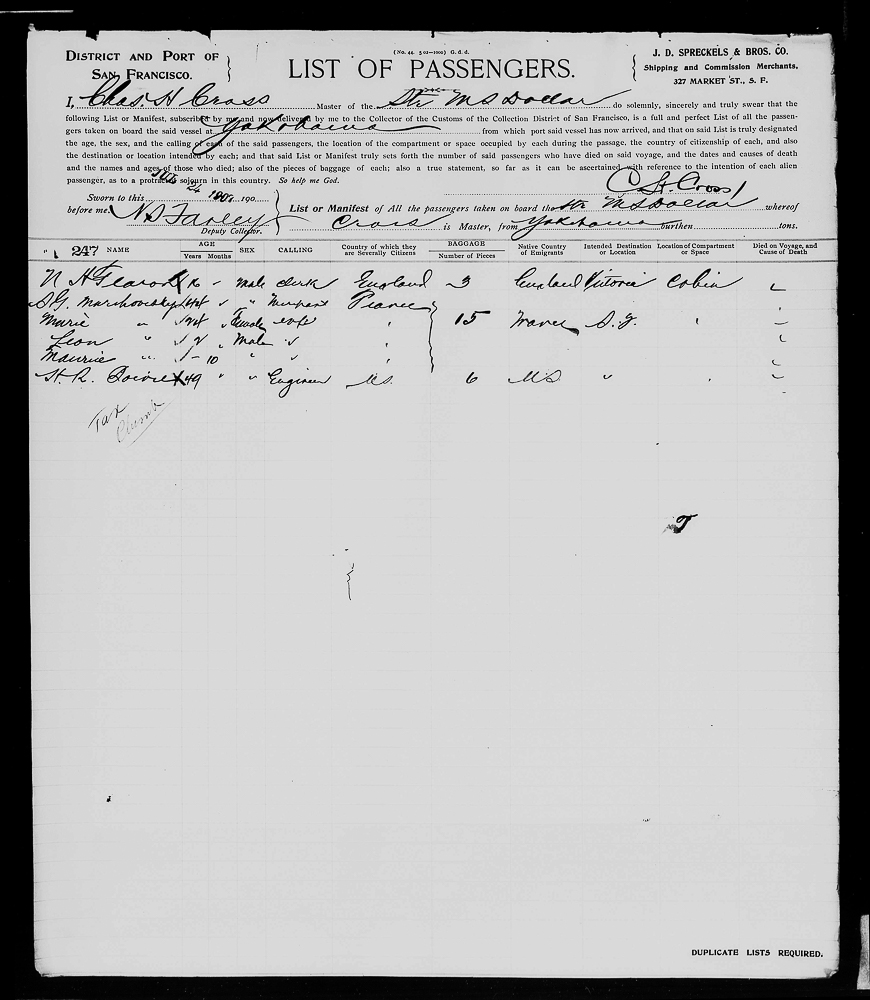 DISTRICT AND PORT OF
SAN FRANCISCO.
(No. 44
LIST OF PASSENGERS.
J. D. SPRECKELS & BROS. CO.
Shipping and Commission Merchants.
327 MARKET ST., S. F.
I, Chas. H Cross Master of the Str M S Dollar do solemnly, sincerely and truly swear that the
following List or Manifest, subscribed by me and now delivered by me to the Collector of the Customs of the Collection District of San Francisco, is a full and perfect List of all the passen-
gers taken on board the said vessel at Yokohama from which port said vessel has now arrived, and that on said List is truly designated
the age, the sex, and the calling of each of the said passengers, the location of the compartment or space occupied by each during the passage, the country of citizenship of each, and also
the destination or location intended by each; and that said List or Manifest truly sets forth the number of said passengers who have died on said voyage, and the dates and causes of death
and the names and ages of those who died; also of the pieces of baggage of each; also a true statement, so far as it can be ascertained with reference to the intention of each alien
passenger, as to a protracted sojourn in this country. So help me God.
C. H. Cross
Sworn to this 190
before me N S Farley
Deputy Collector.
List or Manifest of All the passengers taken on board the Str M S Dollar whereof
Cross is Master, from Yokohama burthen tons.
247 NAME AGE Years Months SEX CALLING Country of which they are Severally Citizens BAGGAGE Number of Pieces Native Country of Emigrants Intended Destination or Location Location of Compartment or Space Died on Voyage, and Cause of Death
N H Male Clerk England 3 England Victoria Cabin
S. G. " France
Marie " Female wife " 15 France S. F. "
Leon " 2 " Male " "
Maurice " - 10 " " "
H. R. 49 " " Engineer U.S. 6 U.S. " "
Tax
DUPLICATE LISTS REQUIRED.